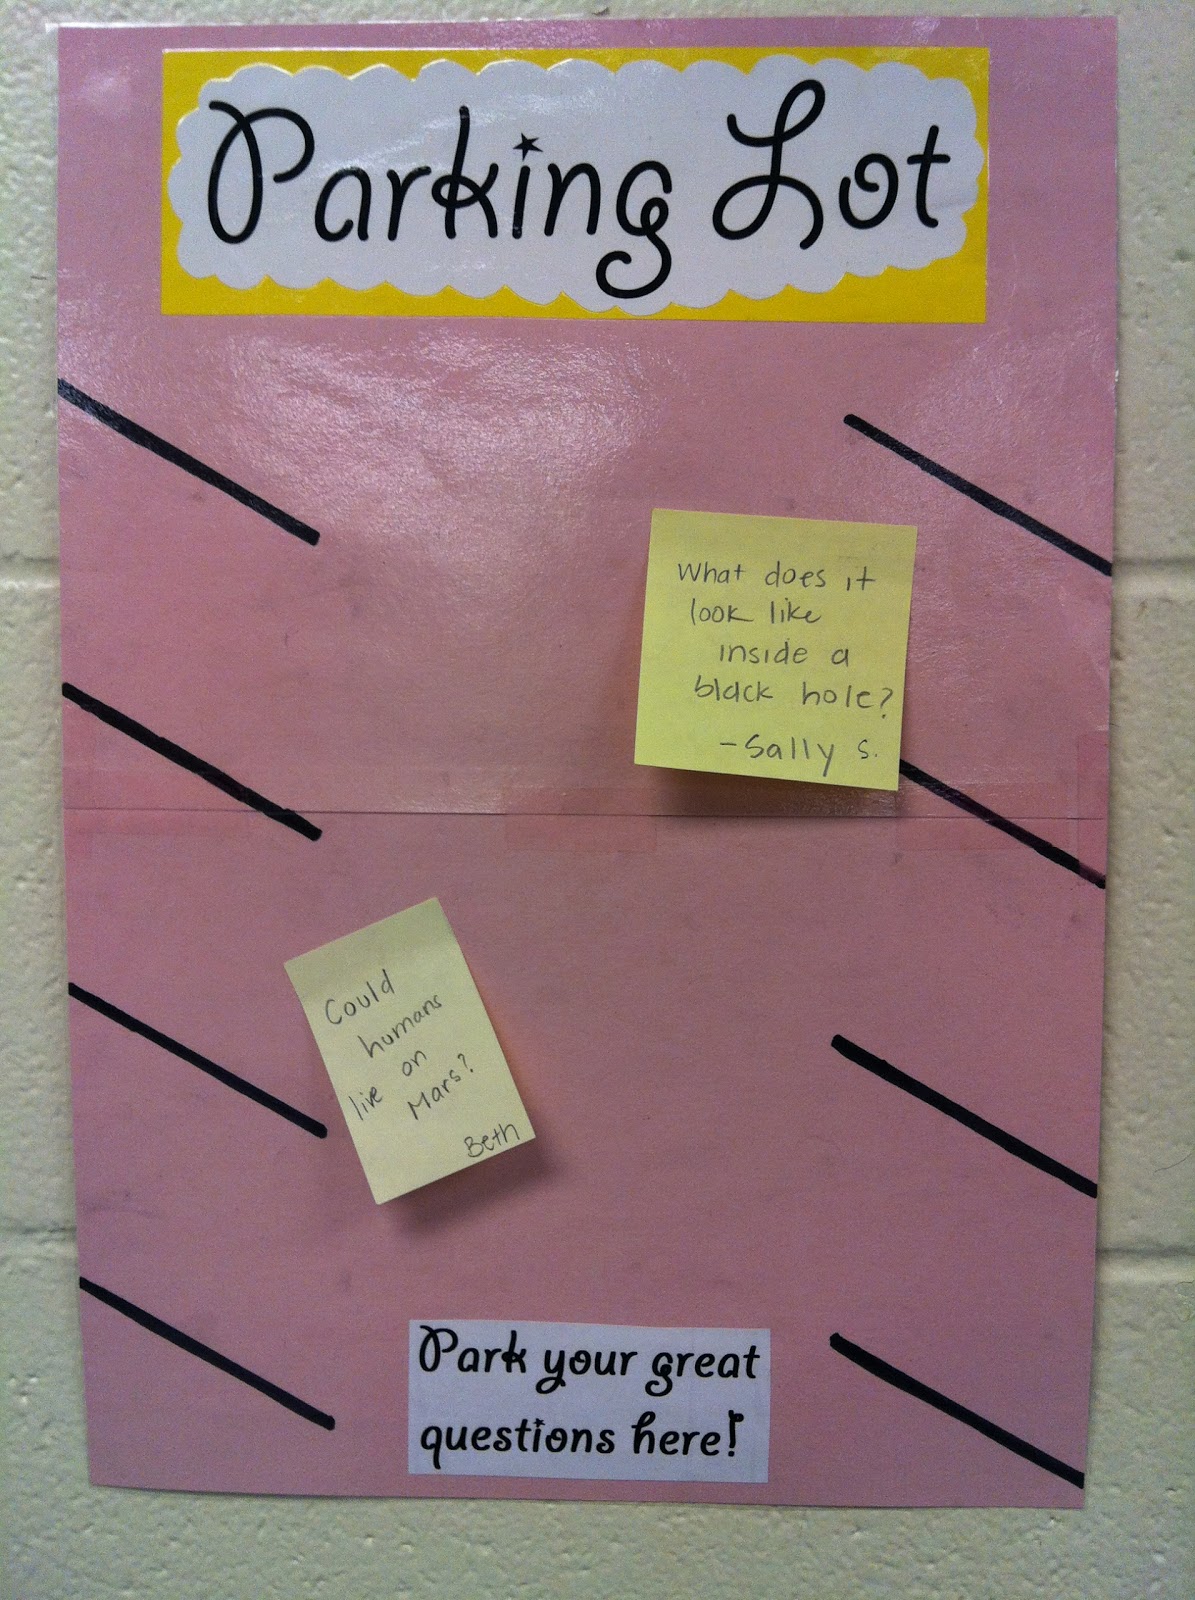 Parking Lot
What does it
look like
inside a
black hole?
-Sally S.
Could
humans
live on
Mars?
Beth
Park your great
questions here!